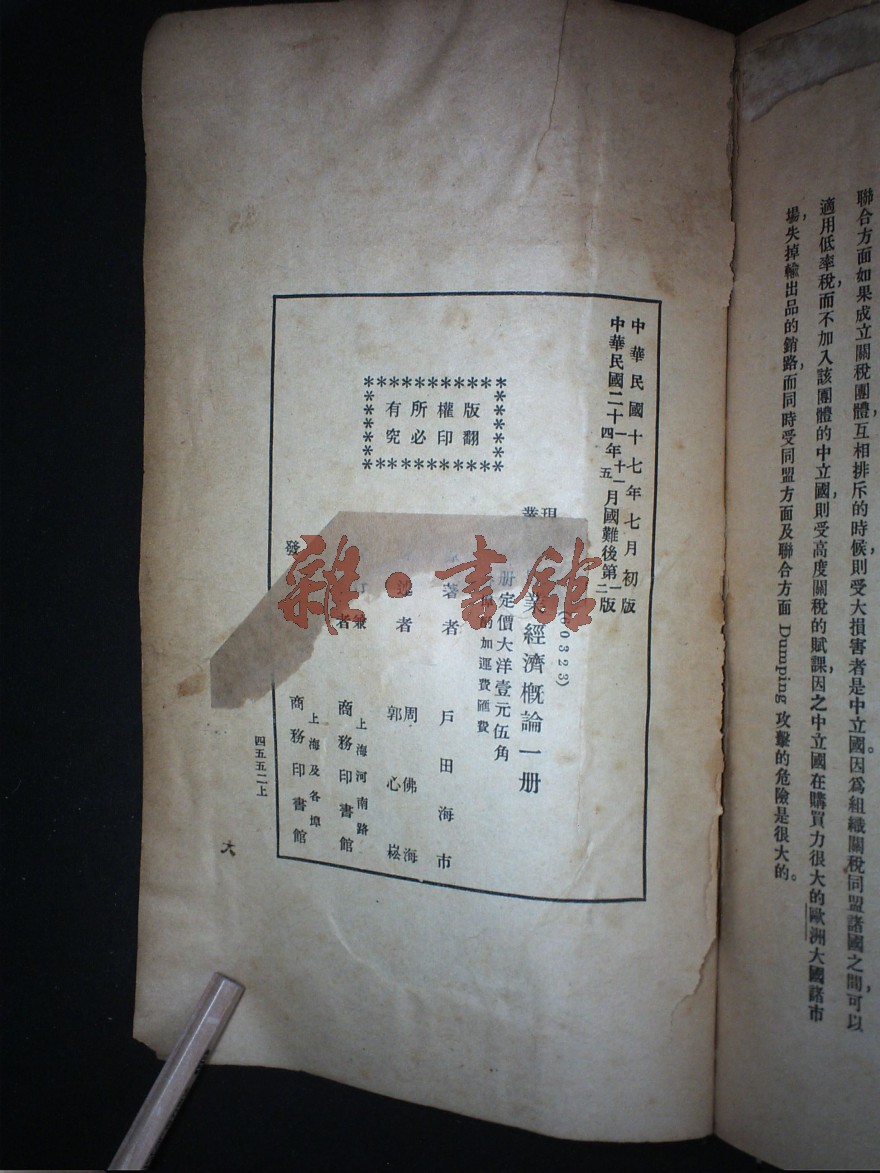 聯合方面如果成立關稅團體，互相排斥的時候，則受大損害者是中立國。因爲組織關稅同盟諸國之間，可以
適用低率稅，而不加入該團體的中立國，則受高度關稅的賦課，因之中立國在購買力很大的歐洲大國諸市
場，失掉輸出品的銷路，而同時受同盟方面及聯合方面 Dumping 攻擊的危險是很大的。
中華民國十七年七月初版
中華民國二十一年十一月國難後第一版
四 五 二
版權所有
翻印必究
(60323)
現
叢
業經濟概論一册
册定價大洋壹元伍角
加運費匯費
著者 戶田海市
述者 周佛海
郭心崧
兼
者
上海河南路
商務印書館
發
上海及各埠
商務印書館
四五五二上
大
雜·書館